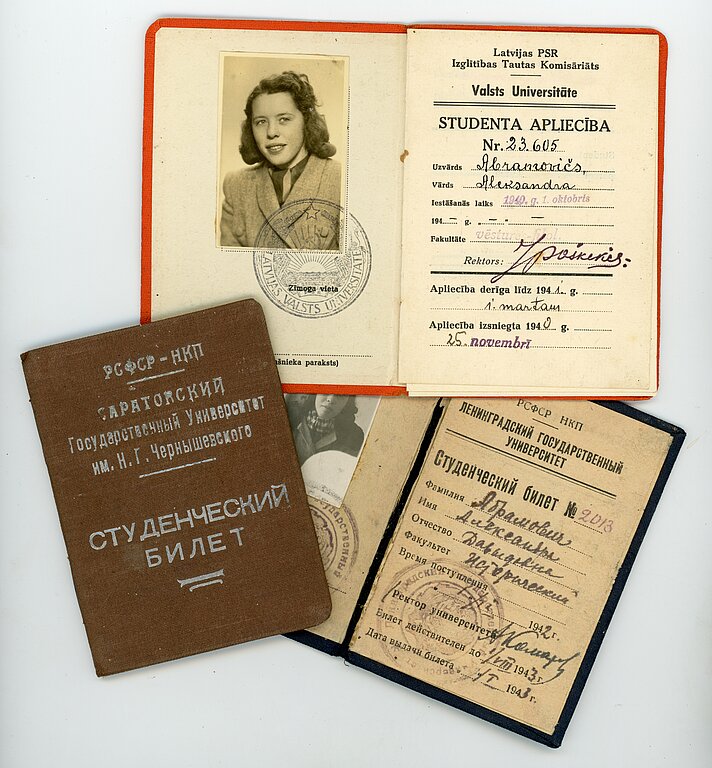 Latvijas PSR
Izglītības Tautas Komisāriāts
Valsts Universitāte
STUDENTA APLIECĪBA
Nr. 23.605
Uzvārds Abramovičs,
Vārds Aleksandra
Iestāšanās laiks 1940. g. 1. oktobris
194 — g. — —
Fakultāte
Rektors:
Apliecība derīga līdz 1941. g.
1. martam
Apliecība izsniegta 1940. g.
25. novembrī
LATVIJAS VALSTS UNIVERSITĀTE
Zīmoga vieta
paraksts)
РСФСР - НКП
САРАТОВСКИЙ
Государственный Университет
им. Н. Г. Чернышевского
СТУДЕНЧЕСКИЙ
БИЛЕТ
РСФСР НКП
ЛЕНИНГРАДСКИЙ ГОСУДАРСТВЕННЫЙ
УНИВЕРСИТЕТ
Студенческий билет № 2013
Фамилия Абрамович
Имя Александра
Отчество Давыдовна
Факультет Исторический
Время поступления
1942 г.
Ректор университета
Билет действителен до 1/VIII 1943 г.
Дата выдачи билета 1943 г.